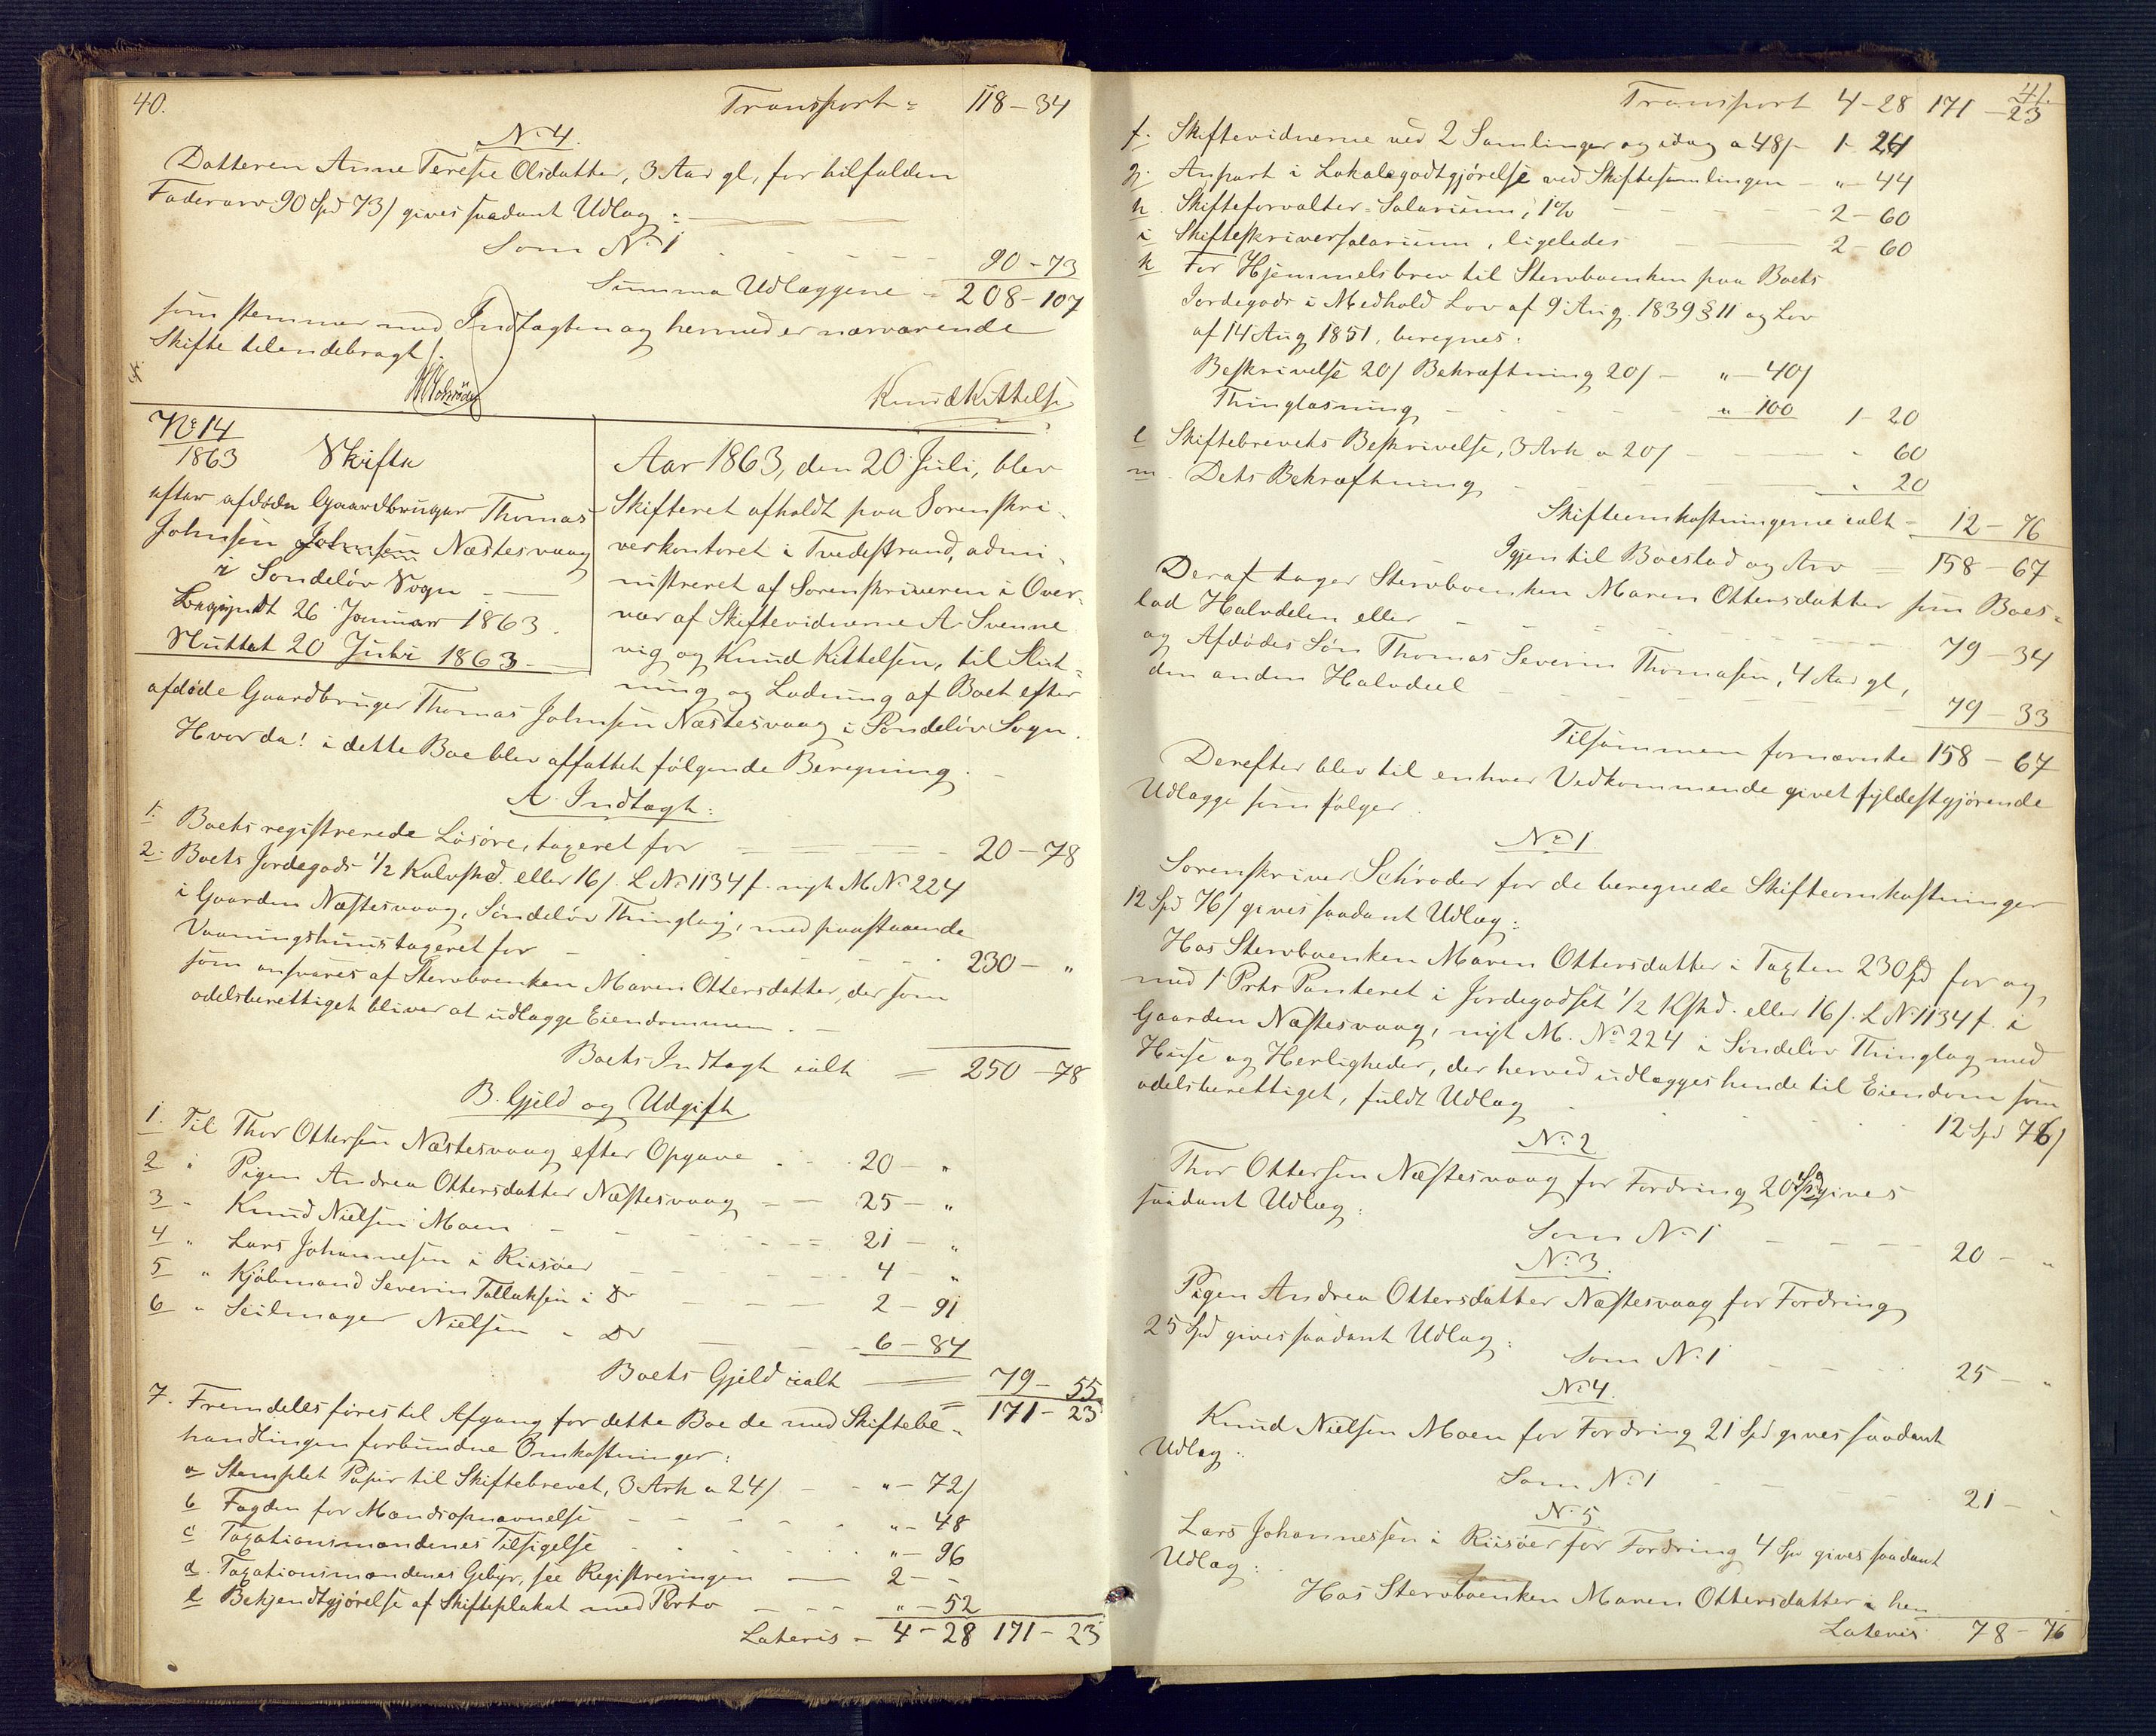 40.
Transport = 118 – 34
No 4.
Datteren Anne Teresie Olsdatter, 3 Aar gl, for tilfalden
Faderarv 90 Spd 73/ gives saadant Udlæg:
Som No 1 90 – 73
Summa Udlæggene – 208 – 107
som stemmer med Indtægten og hermed er nærværende
Skifte tilendebragt.
Knud Kittelsen
No 14
1863 Skifte
efter afdøde Gaardbruger Thomas
Johnsen Johnsen Næstesvaag
i Søndeløv Sogn
Begyndt 26 Januar 1863.
Sluttet 20 Juli 1863
Aar 1863, den 20 Juli, blev
Skifteret afholdt paa Sorenskri-
verkontoret i Tvedestrand, admi-
nistreret af Sorenskriveren i Over-
vær af Skiftevidnerne A. Svenne
vig og Knud Kittelsen, til Slut-
ning og Lodning af Boet efter
afdøde Gaardbruger Thomas Johnsen Næstesvaag i Søndeløv Sogn.
Hvorda! i dette Boe blev affattet følgende Beregning.
A. Indtægt:
1. Boets registrerede Løsøre, taxeret for 20 – 78
2. Boets Jordegods 1/2 Kalvskd. eller 16/. L No 1134 f. nyt M No 224
i Gaarden Næstesvaag, Søndeløv Thinglag, med paastaaende
Vaaningshuus taxeret for 230 – "
som ansvares af Stervboenken Maren Ottersdatter, der som
odelsberettiget bliver at udlægge Eiendommen.
Boets Indtægt ialt = 250 – 78
B. Gjeld og Udgift
1. Til Thor Ottersen Næstesvaag efter Opgave 20 – "
2 " Pigen Andrea Ottersdatter Næstesvaag 25 – "
3 " Knud Nielsen Moen 21 – "
4 " Lars Johannesen i Riisøer 4 – "
5 " Kjøbmand Severin Tallaksen i Do 2 – 91
6 " Seilmager Nielsen " Do 6 – 84
Boets Gjeld ialt 79 – 55
= 171 – 23
7. Fremdeles føres til Afgang for dette Boe de med Skiftebe-
handlingen forbundne Omkostninger:
a Stemplet Papir til Skiftebrevet, 3 Ark a 24/ " – 72/
b Fogden for Mændsopnævnelse " – 48
c Taxationsmændenes Tilsigelse " – 96
d. Taxationsmændenes Gebyr, see Registreringen 2 – "
e Bekjendtgjørelse af Skifteplakat med Porto " – 52
Lateris – 4 – 28 171 – 23
41.
Transport 4 – 28 171 – 23
f. Skiftevidnerne ved 2 Samlinger og idag a 48/ 1 – 24
g. Anpart i Lokalegodtgjørelse ved Skiftesamlingen " – 44
h. Skifteforvalter-Salarium, 1% 2 – 60
i Skifteskriversalarium, ligeledes 2 – 60
k For Hjemmelsbrev til Stervboenken paa Boets
Jordegods i Medhold Lov af 9 Aug. 1839 § 11 og Lov
af 14 Aug 1851, beregnes:
Beskrivelse 20/ Bekræftning 20/ – " – 40/
Thinglæsning " 100 1 – 20
l Skiftebrevets Beskrivelse, 3 Ark a 20/ " 60
m. Dets Bekræftning " 20
Skifteomkostningerne ialt – 12 – 76
Igjen til Boeslod og Arv – 158 – 67
Deraf tager Stervboenken Maren Ottersdatter som Boes-
lod Halvdelen eller 79 – 34
og Afdødes Søn Thomas Severin Thomasen, 4 Aar gl,
den anden Halvdeel 79 – 33
Tilsammen fornævnte 158 – 67
Derefter blev til enhver Vedkommende givet fyldestgjørende
Udlægge som følger.
No 1
Sorenskriver Schröder for de beregnede Skifteomkostninger
12 Spd 76/ gives saadant Udlæg:
Hos Stervboenken Maren Ottersdatter i Taxten 230 Spd for og
med 1 Prts Panteret i Jordegodset 1/2 Kskd. eller 16/. L No 1134 f. i
Gaarden Næstesvaag, nyt M. No 224 i Søndeløv Thinglag med
Huse og Herligheder, der herved udlægges hende til Eiendom som
odelsberettiget, fuldt Udlæg 12 Spd 76/
No 2
Thor Ottersen Næstesvaag for Fordring 20 Spd gives
saadant Udlæg:
Som No 1 20 – "
No 3.
Pigen Andrea Ottersdatter Næstesvaag for Fordring
25 Spd gives saadant Udlæg:
Som No 1 25 – "
No 4.
Knud Nielsen Moen for Fordring 21 Spd gives saadant
Udlæg:
Som No 1 21 – "
No 5
Lars Johannessen i Riisøer for Fordring 4 Spd gives saadant
Udlæg:
Hos Stervboenken Maren Ottersdatter i hen
Lateris 78 – 76